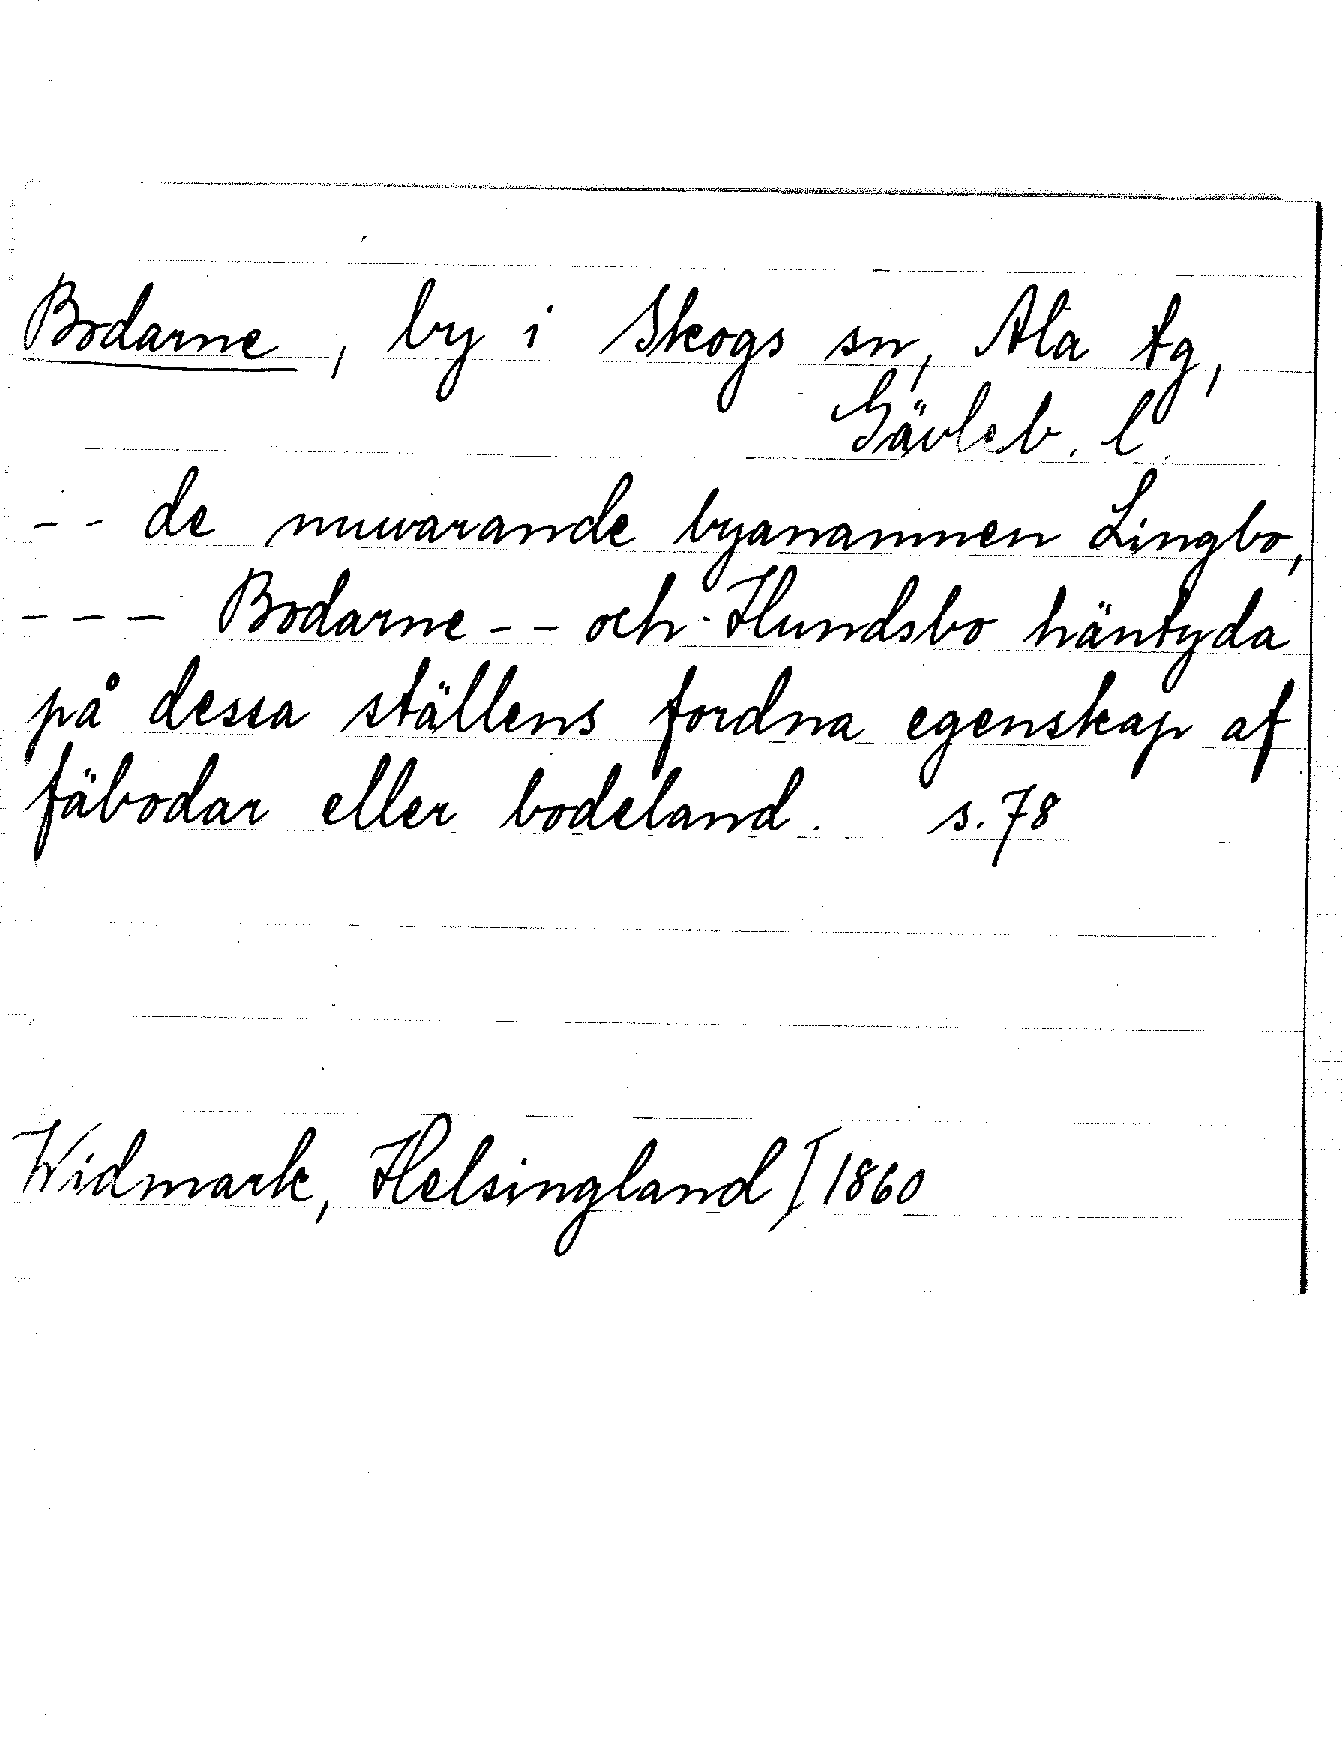 Bodarne, by i Skogs sn, Ala tg,
Gävleb. l.
-- de nuvarande byanamnen Lingbo,
--- Bodarne -- och Hundsbo häntyda
på dessa ställens fordna egenskap af
fäbodar eller bodeland. s. 78
Widmark, Helsingland I 1860